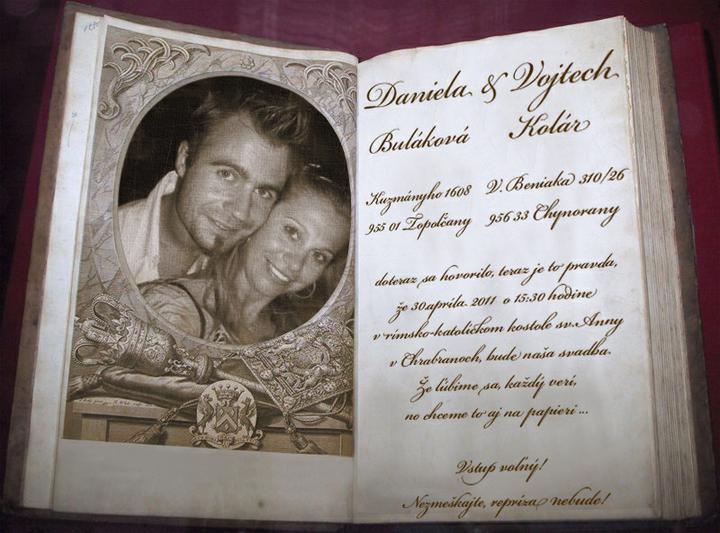 Daniela & Vojtech
Buláková Kolár
Kuzmányho 1608 V. Beniaka 310/26
955 01 Topolčany 956 33 Chynorany
doteraz sa hovorilo, teraz je to pravda,
že 30.apríla 2011 o 15:30 hodine
v rímsko-katolíckom kostole sv. Anny
v Chrabranoch, bude naša svadba.
Že ľúbime sa, každý verí,
no chceme to aj na papieri ...
Vstup voľný!
Nezmeškajte, repríza nebude!